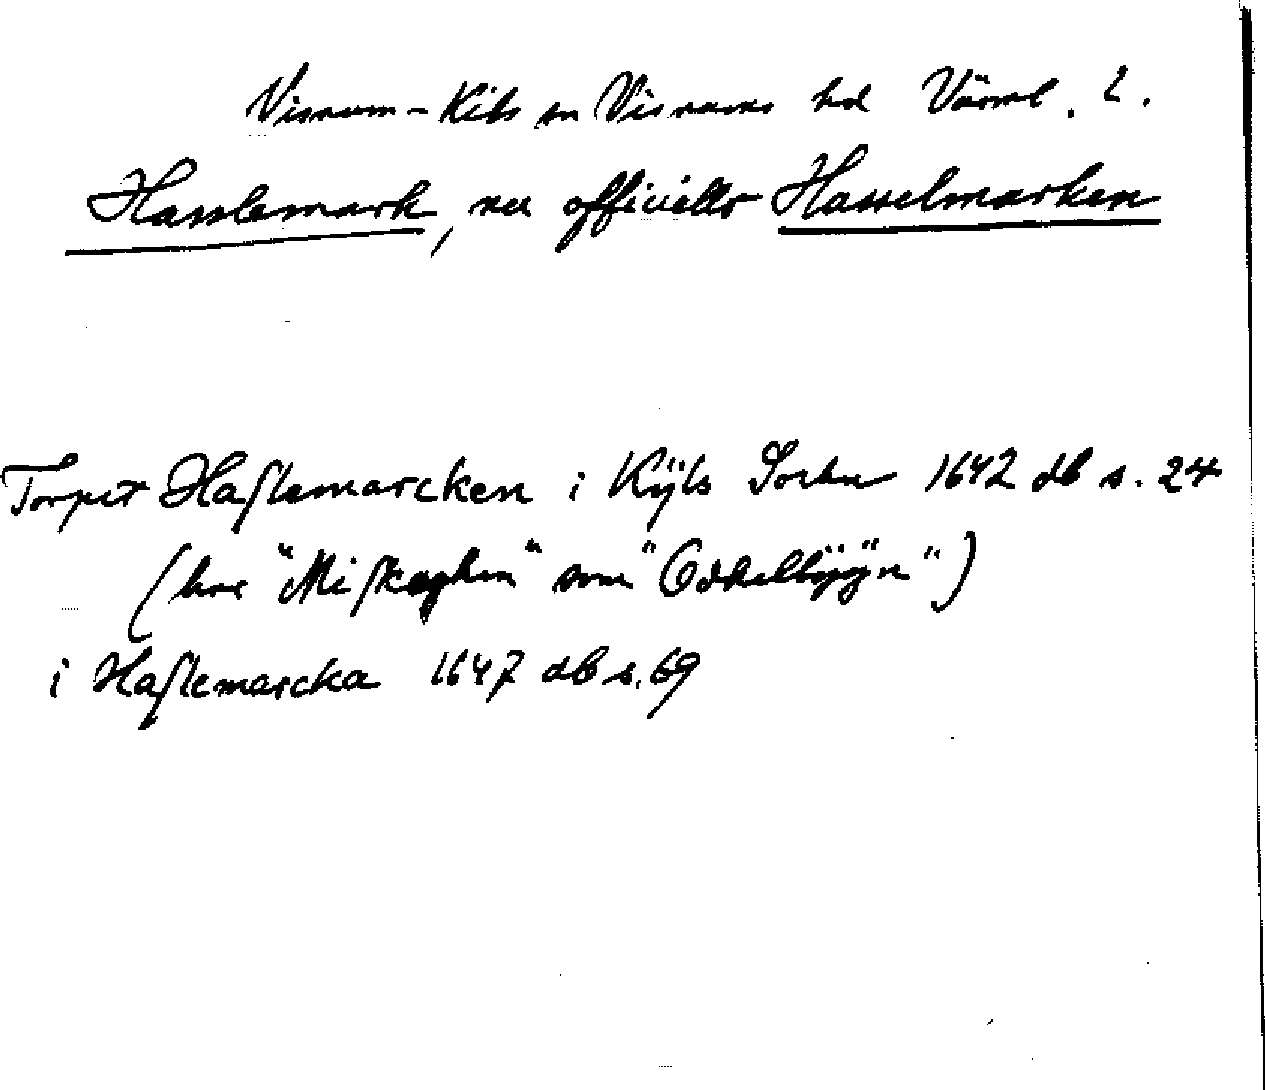 Visnum-Kils sn Visnums hd Värml. l.
Hasslemark, nu officiellt Hasselmarken
Torpet Haſlemarcken i Kÿls Sochn 1642 db s. 24
(hvs "Miſkaghn" som "Odhellbÿÿn")
i Haſlemarcka 1647 db s. 69